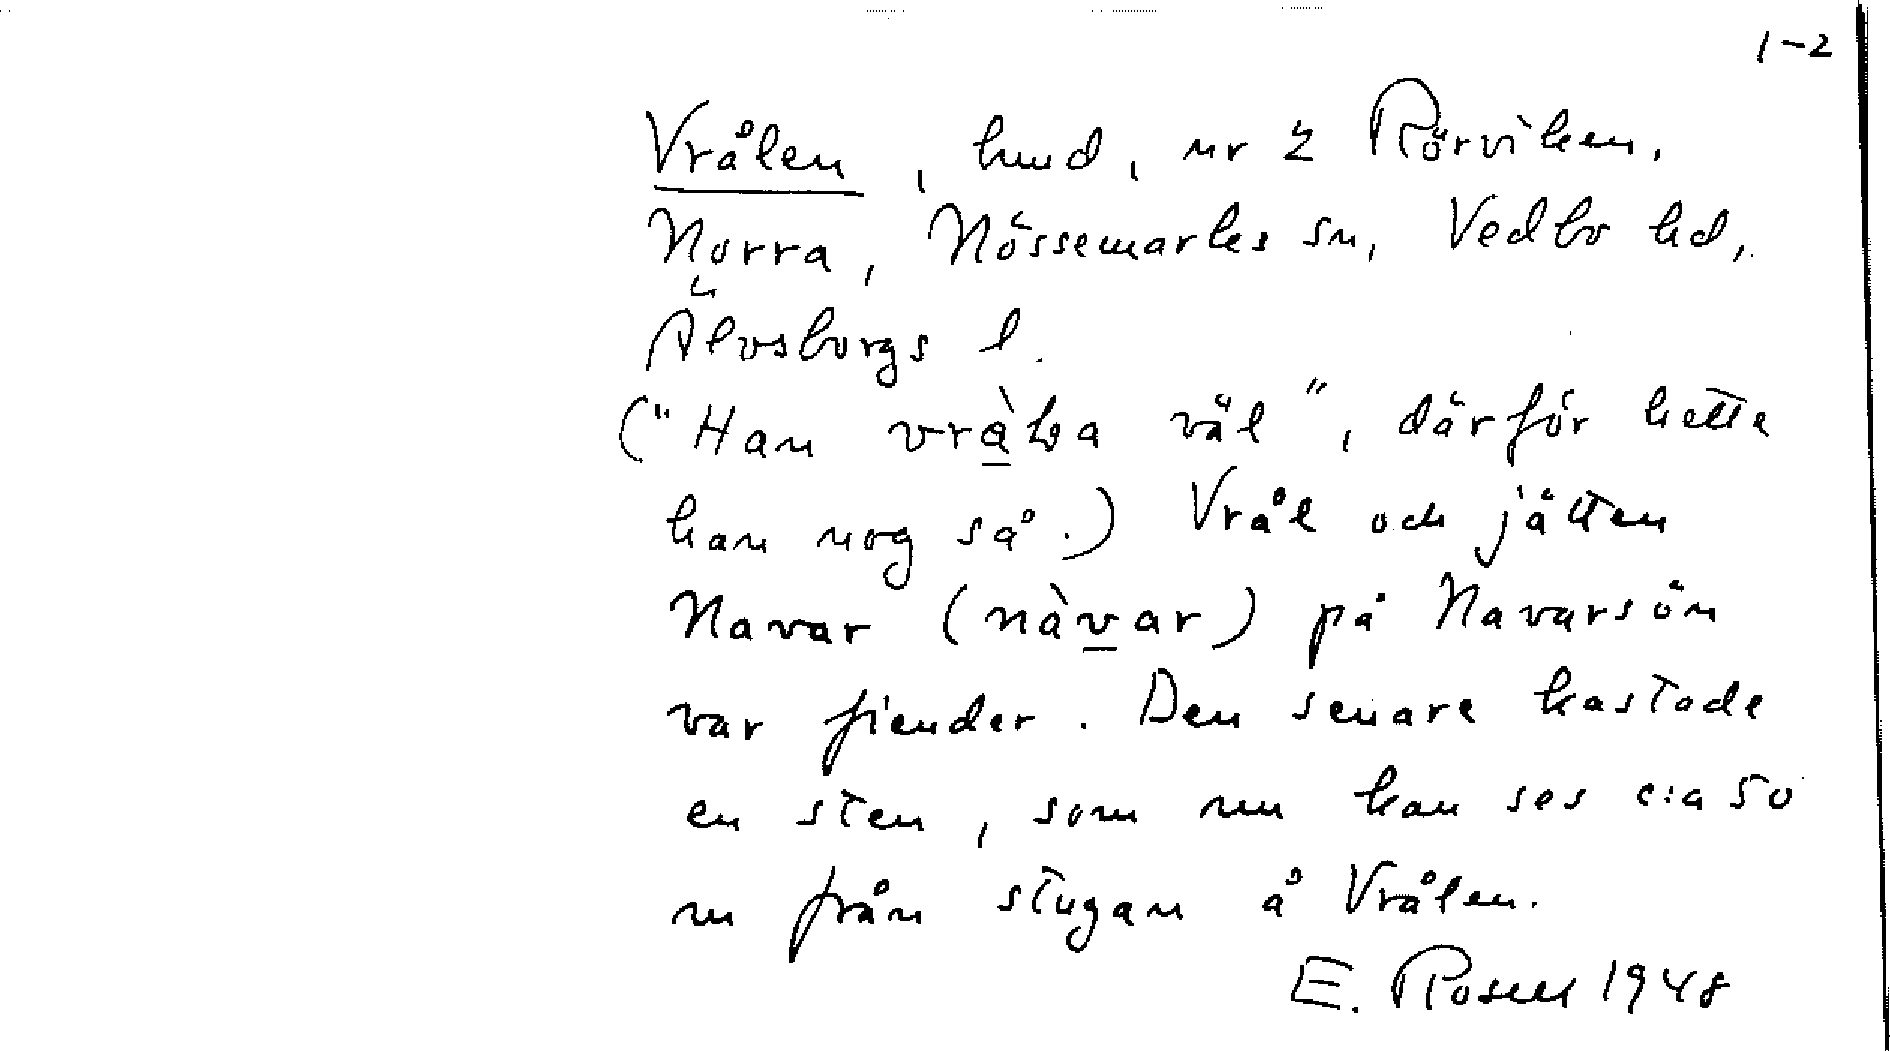 1-2
Vrålen, hmd, nr 2 Rörviken,
Norra, Nössemarks sn, Vedbo hd,
Älvsborgs l.
("Han vràla väl", därför hette
han nog så.) Vrål och jätten
Navar (nàvar) på Navarsön
var fiender. Den senare kastade
en sten, som nu kan ses c:a 50
m från stugan å Vrålen.
E. Rosell 1948